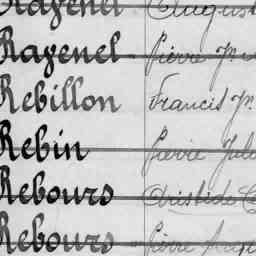 Ravenel August
Ravenel Pierre M
Rebillon Francis M
Rebin Pierre Jule
Rebours Aristide
Rebours Pierre